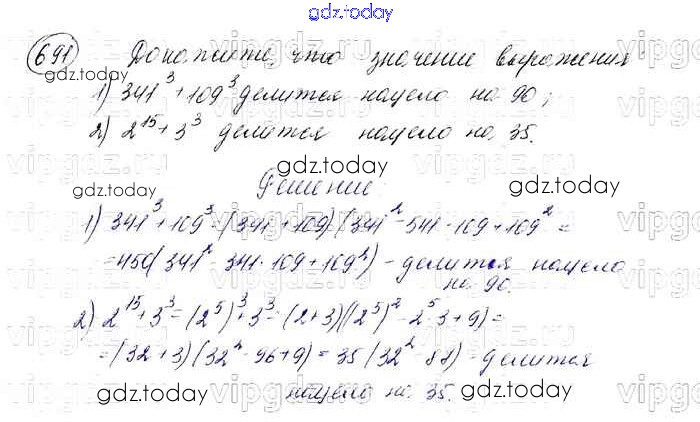 gdz.today
691 Докажите, что значение выражения
gdz.today
1) 341³+109³ делится нацело на 90;
2) 2¹⁵+3³ делится нацело на 35.
gdz.today
Решение:
gdz.today gdz.today
1) 341³+109³=(341+109)(341²-541·109+109²=
=450(341²-341·109+109²) - делится нацело
на 90.
2) 2¹⁵+3³=(2⁵)³+3³=(2+3)((2⁵)²-2⁵·3+9)=
=(32+3)(32²-96+9)=35(32² 88) - делится
gdz.today gdz.today
нацело на 35.